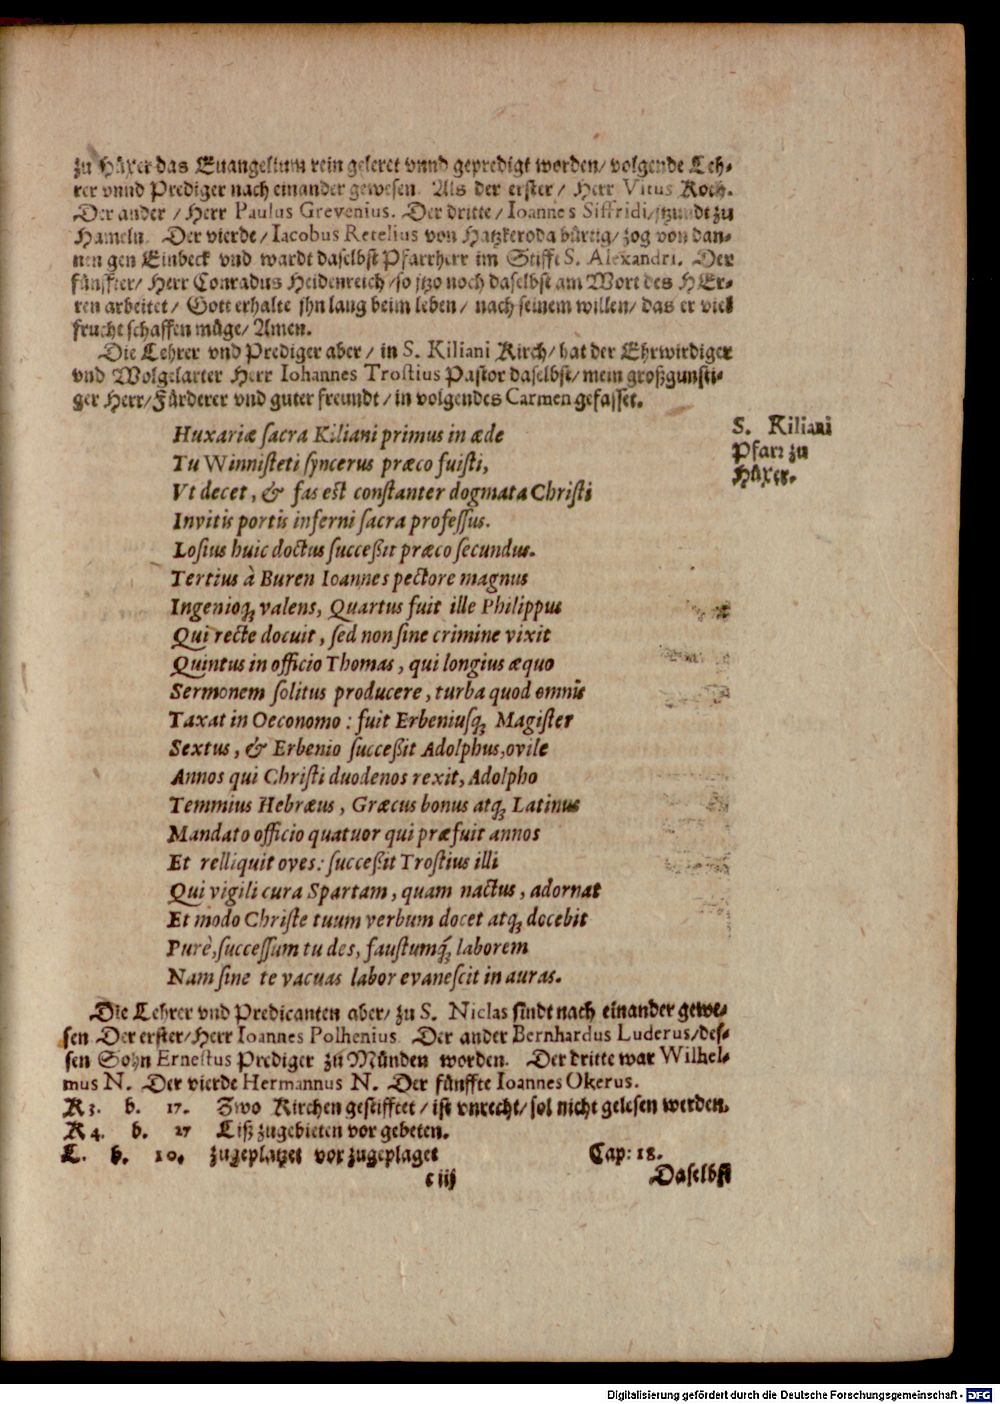 zu Hüxer das Euangelium rein geleret vnnd gepredigt worden/ volgende Leh-
rer vnnd Prediger nach einander gewesen. Als der erster/ Herr Vitus Koch.
Der ander / Herr Paulus Grevenius. Der dritte / Ioannes Siffridi/itzundt zu
Hameln. Der vierde / Iacobus Retelius von Hatzkeroda bürtig/ zog von dan-
nen gen Einbeck vnd wardt daselbst Pfarrherr im Stifft S. Alexandri. Der
fünffter/ Herr Conradus Heidenreich / so itzo noch daselbst am Wort des HEr-
ren arbeitet / Gott erhalte ihn lang beim leben / nach seinem willen/ das er viel
frucht schaffen müge/ Amen.
Die Lehrer vnd Prediger aber / in S. Kiliani Kirch/ hat der Ehrwirdiger
vnd Wolgelarter Herr Iohannes Trostius Pastor daselbst/ mein großgunsti-
ger Herr/ Fürderer vnd guter freundt / in volgendes Carmen gefasset.
S. Kiliani
Pfarr zu
Hüxer.
Huxariæ sacra Kiliani primus in æde
Tu Winnisteti syncerus præco fuisti,
Vt decet, & fas est constanter dogmata Christi
Invitis portis inferni sacra professus.
Losius huic doctus succeßit præco secundus.
Tertius à Buren Ioannes pectore magnus
Ingenioq́; valens, Quartus fuit ille Philippus
Qui recte docuit, sed non sine crimine vixit
Quintus in officio Thomas, qui longius æquo
Sermonem solitus producere, turba quod omnis
Taxat in Oeconomo : fuit Erbeniusq; Magister
Sextus, & Erbenio succeßit Adolphus, ovile
Annos qui Christi duodenos rexit, Adolpho
Temmius Hebræus, Græcus bonus atq; Latinus
Mandato officio quatuor qui præfuit annos
Et relliquit oves: succeßit Trostius illi
Qui vigili cura Spartam, quam nactus, adornat
Et modo Christe tuum verbum docet atq; docebit
Purè, successum tu des, faustumq́; laborem
Nam sine te vacuas labor evanescit in auras.
Die Lehrer vnd Predicanten aber/ zu S. Niclas sindt nach einander gewe-
sen Der erster/ Herr Ioannes Polhenius. Der ander Bernhardus Luderus/des-
sen Sohn Ernestus Prediger zu Münden worden. Der dritte war Wilhel-
mus N. Der vierde Hermannus N. Der fünffte Ioannes Okerus.
K 3. b. 17. Zwo Kirchen gestifftet / ist vnrecht/ sol nicht gelesen werden.
K 4. b. 27 Liß zugebieten vor gebeten.
L. b. 10. zugeplatzet vor zugeplaget Cap: 18.
c iij Daselbst
Digitalisierung gefördert durch die Deutsche Forschungsgemeinschaft - DFG